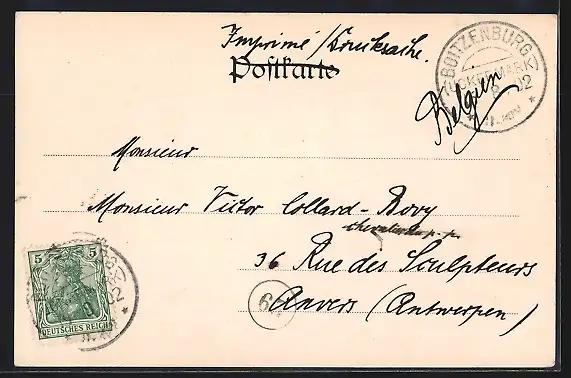 Imprimé / Drucksache.
Postkarte
BOITZENBURG
(UCKERMARK)
8 02
Belgien
Monsieur
Monsieur Victor Collard-Bovy
36 Rue des Sculpteurs
Anvers (Antwerpen)
6
5 5
DEUTSCHES REICH
02